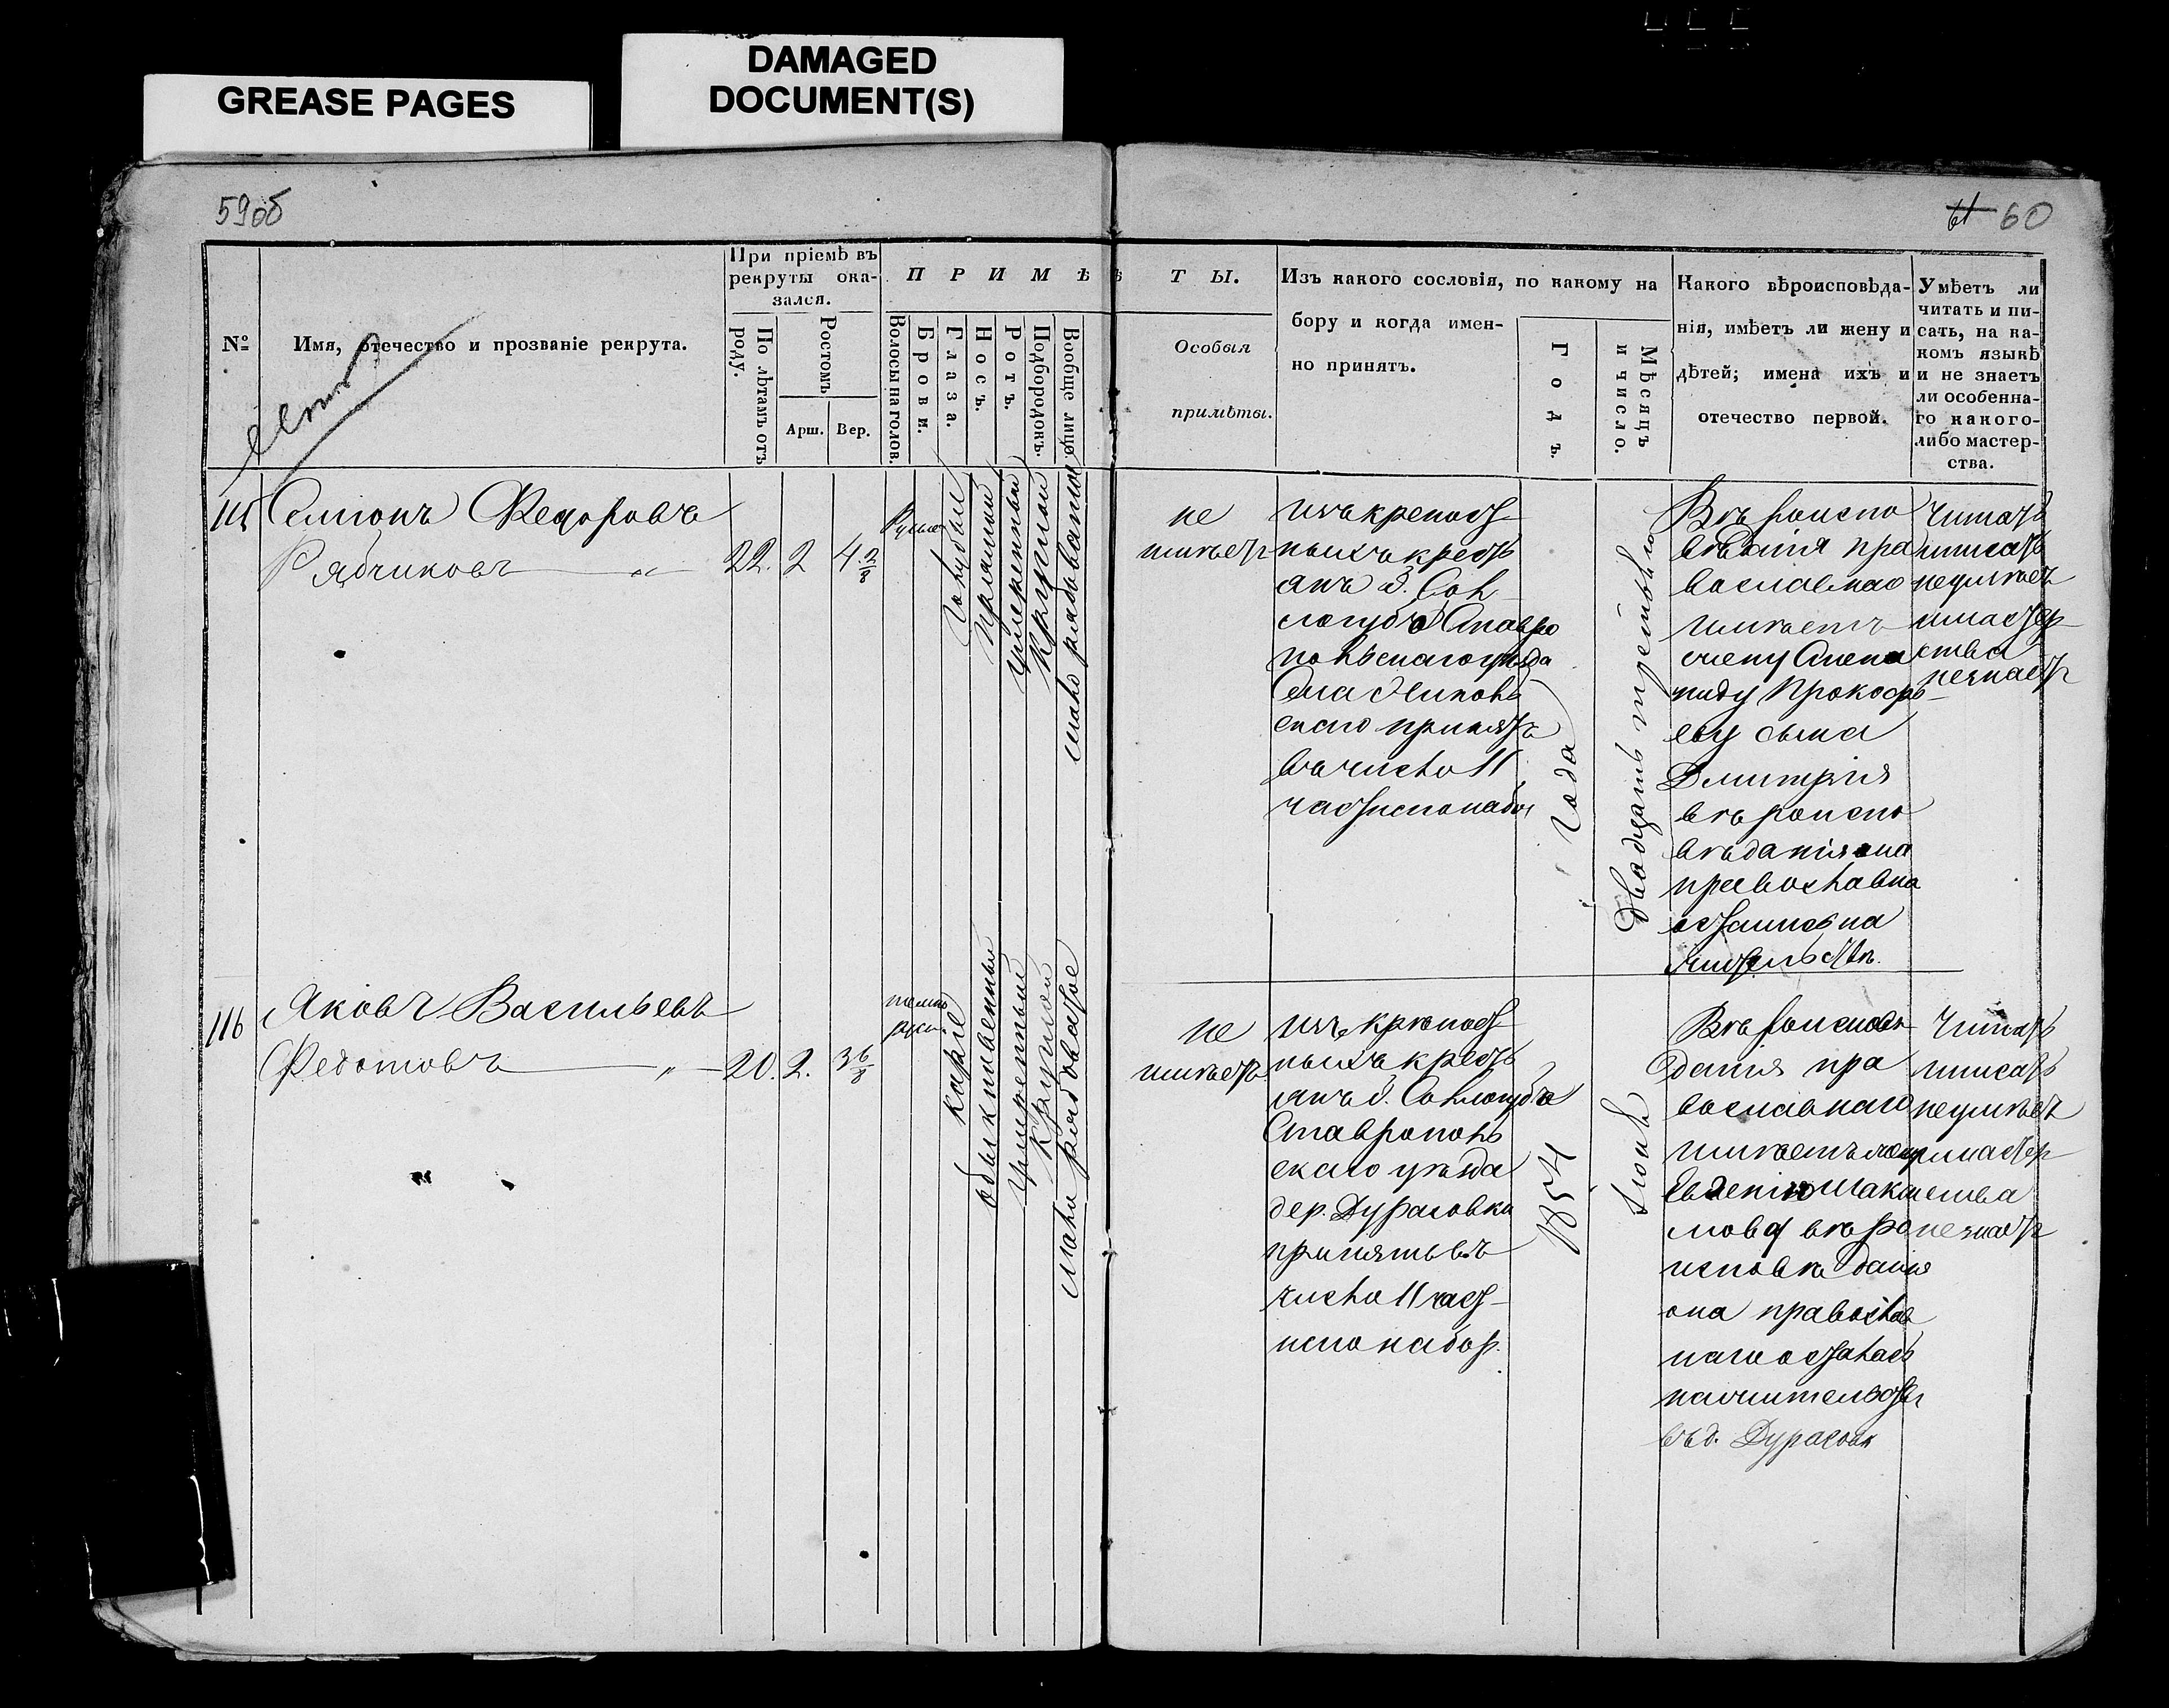 GREASE PAGES
DAMAGED
DOCUMENT(S)
59об
61 60
№
Имя, отечество и прозваніе рекрута.
При пріемѣ въ
рекруты ока-
зался.
По лѣтамъ отъ
роду.
Ростомъ
Арш. Вер.
П Р И М Ѣ
Волосы на голов.
Брови.
Глаза.
Носъ.
Ротъ.
Подбородокъ.
Вообще лицо.
Т Ы.
Особыя
примѣты.
Изъ какого сословія, по какому на
бору и когда имен-
но принятъ.
Годъ.
Мѣсяцъ
и число.
Какого вѣроисповѣда-
нія, имѣетъ ли жену и
дѣтей; имена ихъ и
отечество первой.
Умѣетъ ли
читать и пи-
сать, на ка-
комъ языкѣ
и не знаетъ
ли особенна-
го какого-
либо мастер-
ства.
115
Семіонъ Федоровъ
Рябчиковъ
22. 2 4. 2/8
Русые
голубыи
прямои
умеренныи
круглои
мало рябоватои
не
имѣетъ
изъ крепост-
ныхъ крестъ
янъ д. Сол
логуба Ставро
польскаго уѣзда
принятъ
въ число 11
частнаго набор
года
Двадцать третьяго
Вѣроиспо
вѣданія пра
вославнаго
имѣетъ
жену Степа
ниду Прокофь
еву сына
Дмитрія
вѣроиспо
вѣданія она
православна
осталась на
читать
и писать
не умѣетъ
и мастер
ства
не знаетъ
116
Яковъ Васильевъ
Федотовъ
20. 2. 3 6/8
темно
рус.
каріе
обыкнавенныи
умеренныи
круглои
мало рябоватое
не
имѣетъ
изъ крѣпост
ныхъ крестъ
янъ д. Соллогуба
Ставрополь
скаго уѣзда
дер. Дурасовки
принятъ въ
число 11 част-
наго набор.
1854
Іюня
Вѣроисповѣ
данія пра
вославнаго
имѣетъ жену
Евгенію Макси
мову вѣро
исповѣданія
она православ
наго осталась
на жительст
въ д. Дурасовк
читать
и писать
не умѣетъ
и мастер
ства
не знаетъ